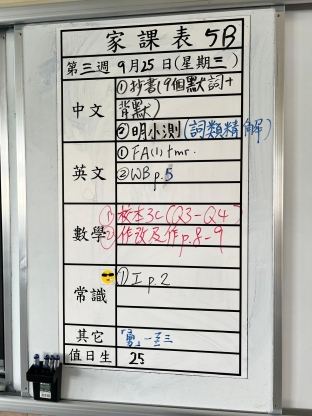 家課表 5B
第三週 9月25日(星期三)
中文
①抄書(9個默詞+
背默)
②明小測(詞類精解)
英文
①FA(1)+mr.
②WB p.5
數學
①校本3C(Q3-Q4)
②作改及作p.8-9
常識
①I p.2
其它
值日生 25